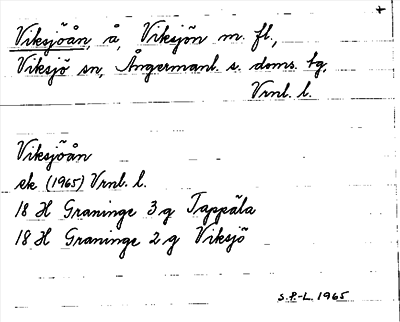 Viksjöån, å, Viksjön m. fl.,
Viksjö sn, Ångermanl. s. doms. tg,
Vrnl. l.
Viksjöån
ek (1965) Vrnl. l.
18 H Graninge 3 g Tappäla
18 H Graninge 2 g Viksjö
S.P.-L. 1965